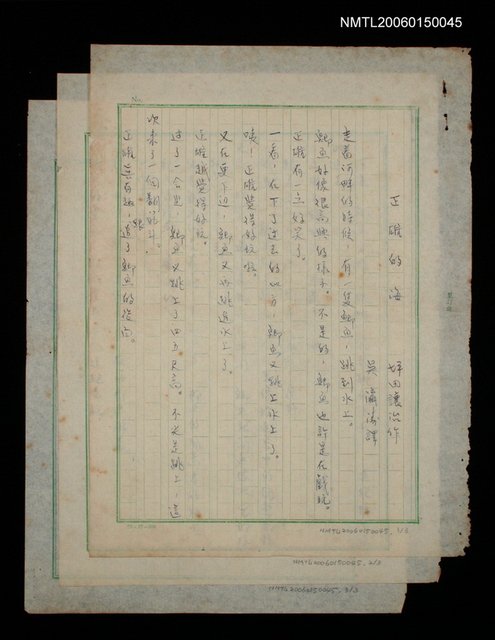 NMTL20060150045
正雄的海
坪田讓治作
吳瀛濤譯
走着河畔的時候,有一隻鯽魚,跳到水上。
鯽魚好像很高興的樣子。不是的,鯽魚也許是在戲玩。
正雄有一点好笑了。
一看,在下了过去的地方,鯽魚又跳上水上了。
咦!正雄覺得好玩
又在更下边,鯽魚又再跳过水上了。
正雄越覺得好玩。
过了一会兒,鯽魚又跳上了四五尺高。不光是跳上,這
次来了一個翻斗。
正雄 有趣,追了鯽魚的後面。
NMTL20060150045 1/3
NMTL20060150045 2/3
NMTL20060150045 3/3